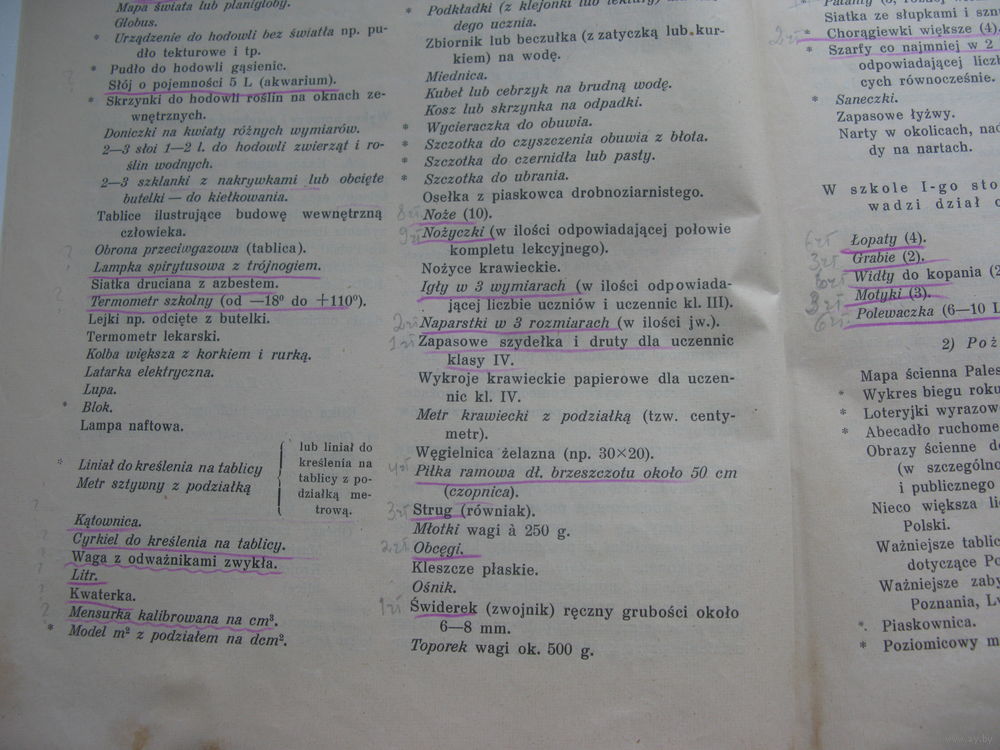 Mapa świata lub planigloby.
Globus.
* Urządzenie do hodowli bez światła np. pu-
dło tekturowe i tp.
* Pudło do hodowli gąsienic.
? Słój o pojemności 5 L (akwarium).
* Skrzynki do hodowli roślin na oknach ze-
wnętrznych.
Doniczki na kwiaty różnych wymiarów.
2—3 słoi 1—2 l. do hodowli zwierząt i ro-
ślin wodnych.
2—3 szklanki z nakrywkami lub obcięte
butelki — do kiełkowania.
Tablice ilustrujące budowę wewnętrzną
człowieka.
? Obrona przeciwgazowa (tablica).
Lampka spirytusowa z trójnogiem.
Siatka druciana z azbestem.
? Termometr szkolny (od —18° do +110°).
Lejki np. odcięte z butelki.
Termometr lekarski.
Kolba większa z korkiem i rurką.
Latarka elektryczna.
Lupa.
* Blok.
Lampa naftowa.
* Liniał do kreślenia na tablicy
Metr sztywny z podziałką
lub liniał do
kreślenia na
tablicy z po-
działką me-
trową.
? Kątownica.
? Cyrkiel do kreślenia na tablicy.
? Waga z odważnikami zwykła.
? Litr.
? Kwaterka.
? Mensurka kalibrowana na cm³.
* Model m² z podziałem na dcm².
* Podkładki (z klejonki lub tektury)
dego ucznia.
Zbiornik lub beczułka (z zatyczką lub kur-
kiem) na wodę.
Miednica.
Kubeł lub cebrzyk na brudną wodę.
Kosz lub skrzynka na odpadki.
* Wycieraczka do obuwia.
* Szczotka do czyszczenia obuwia z błota.
* Szczotka do czernidła lub pasty.
* Szczotka do ubrania.
Osełka z piaskowca drobnoziarnistego.
8 zł Noże (10).
9 zł Nożyczki (w ilości odpowiadającej połowie
kompletu lekcyjnego).
Nożyce krawieckie.
Igły w 3 wymiarach (w ilości odpowiada-
jącej liczbie uczniów i uczennic kl. III).
2 zł Naparstki w 3 rozmiarach (w ilości jw.).
1 zł Zapasowe szydełka i druty dla uczennic
klasy IV.
Wykroje krawieckie papierowe dla uczen-
nic kl. IV.
Metr krawiecki z podziałką (tzw. centy-
metr).
Węgielnica żelazna (np. 30×20).
4 zł Piłka ramowa dł. brzeszczotu około 50 cm
(czopnica).
3 zł Strug (równiak).
Młotki wagi à 250 g.
2 zł Obcęgi.
Kleszcze płaskie.
Ośnik.
1 zł Świderek (zwojnik) ręczny grubości około
6—8 mm.
Toporek wagi ok. 500 g.
Siatka ze słupkami i sznu
2 zł * Chorągiewki większe (4).
* Szarfy co najmniej w 2
odpowiadającej liczb
cych równocześnie.
* Saneczki.
Zapasowe łyżwy.
Narty w okolicach, nad
dy na nartach.
W szkole I-go sto
wadzi dział o
6 zł Łopaty (4).
3 zł Grabie (2).
Widły do kopania (2
3 zł Motyki (3).
6 zł Polewaczka (6—10 L
2) Poż
Mapa ścienna Pales
* Wykres biegu roku
* Loteryjki wyrazow
* Abecadło ruchome
Obrazy ścienne do
(w szczególno
i publicznego
Nieco większa li
Polski.
Ważniejsze tablic
dotyczące Po
Ważniejsze zaby
Poznania, Lw
* Piaskownica.
* Poziomicowy m
www.ay.by